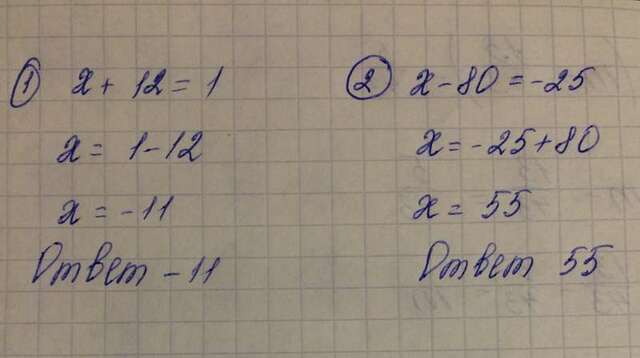 ① x + 12 = 1
x = 1 - 12
x = -11
Ответ -11
② x - 80 = -25
x = -25 + 80
x = 55
Ответ 55